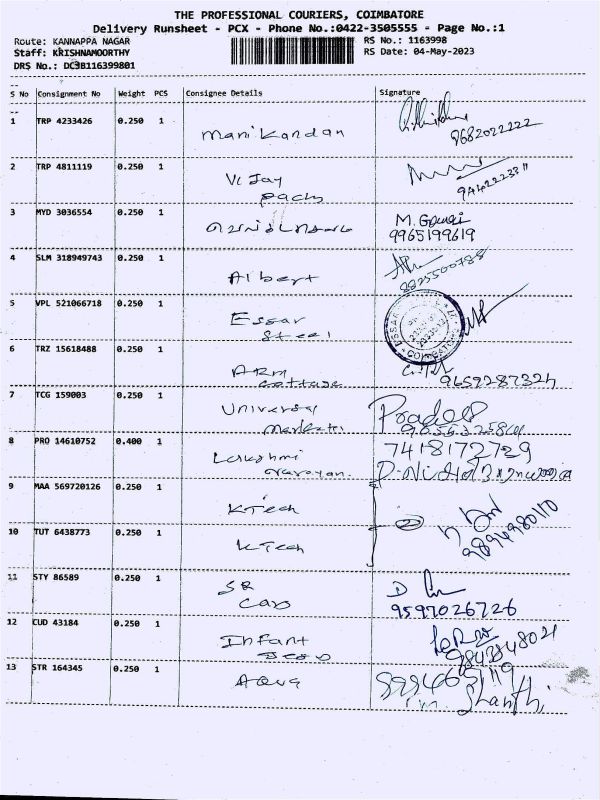 THE PROFESSIONAL COURIERS, COIMBATORE
Delivery Runsheet - PCX - Phone No.:0422-3505555 - Page No.:1
Route: KANNAPPA NAGAR RS No.: 1163998
Staff: KRISHNAMOORTHY RS Date: 04-May-2023
DRS No.: DC3B116399801
S No Consignment No Weight PCS Consignee Details Signature
1 TRP 4233426 0.250 1 Manikandan
9682022222
2 TRP 4811119 0.250 1 Vijay
3 MYD 3036554 0.250 1 M. Gowri
9965199619
4 SLM 318949743 0.250 1 Albert
5 VPL 521066718 0.250 1 Essar
Steel
COIMBATORE
6 TRZ 15618488 0.250 1 ARM
cottage 9659287324
7 TCG 159003 0.250 1 Universal Pradeep
8 PRO 14610752 0.400 1 Lakshmi 7418172729
Narayan.
9 MAA 569720126 0.250 1 KTech
9894980110
10 TUT 6438773 0.250 1 KTech
11 STY 86589 0.250 1 SR
9597026726
12 CUD 43184 0.250 1 Infant
13 STR 164345 0.250 1 Aqua
Shanthi